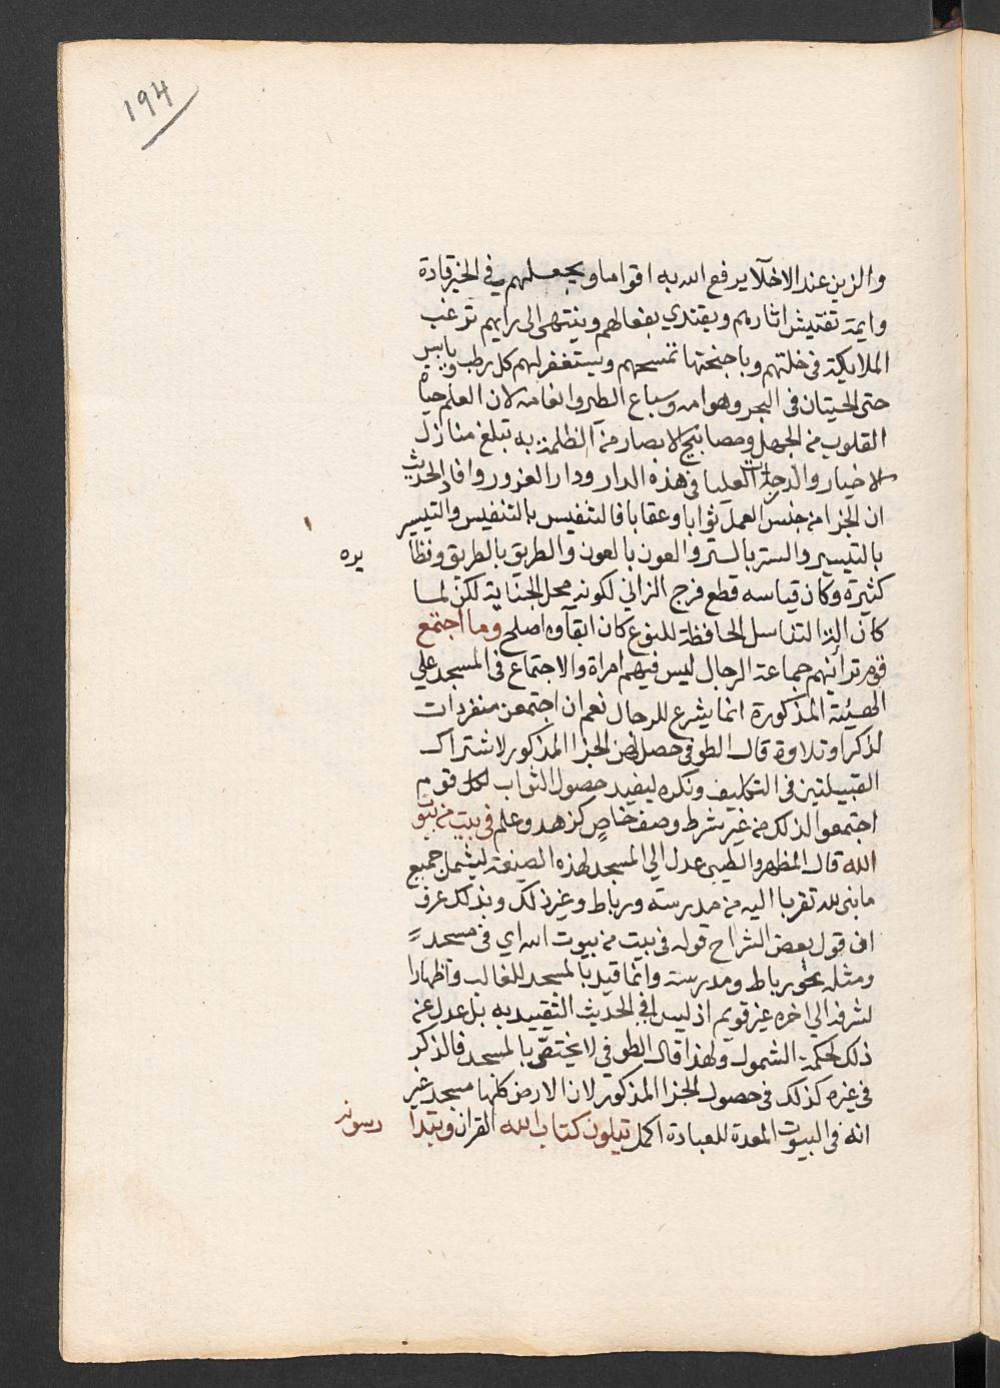 194
والزين عند الاخلاء يرفع الله به اقواما ويجعلهم في الخير قادة
وايمة تقتبس اثارهم ويقتدي بفعالهم وينتهى الى رايهم ترغب
الملايكة في خلتهم وباجنحتها تمسحهم ويستغفر لهم كل رطب ويابس
حتى الحيتان في البحر وهوامه وسباع الطير وانعامه لان العلم حياة
القلوب من الجهل ومصابيح الابصار من الظلمة به تبلغ منازل
الاخيار والدرجات العليا في هذه الدار ودار الغرور وافاد الحديث
ان الجزا من جنس العمل ثوابا وعقابا فالتنفيس بالتنفيس والتيسير
بالتيسير والستر بالستر والعون بالعون والطريق بالطريق ونظا يره
كثيرة وكان قياسه قطع فرج الزاني لكونه محل الجناية لكن لما
كان الة التناسل الحافظة للنوع كان ابقآوه اصلح وما اجتمع
قوم تراينهم جماعة الرجال ليس فيهم امراة والاجتماع في المسجد علي
الهيئة المذكورة انما يشرع للرجال نعم ان اجتمعن منفردات
لذكر او تلاوة قال الطوفي حصل لهن الجزا المذكور لاشتراك
القبيلتين في التكليف ونكره ليفيد حصول الثواب لكل قوم
اجتمعوا لذلك من غير شرط وصف خاص كزهد وعلم في بيت من بيوت
الله قال المظهر والطيبي عدل الي المسجد لهذه الصيغة ليشمل جميع
ما بنى لله تقربا اليه من مدرسة ورباط وغير ذلك وبذلك عرف
ان قول بعض الشراح قوله في بيت من بيوت الله اي في مسجد
ومثله نحو رباط ومدرسة وانما قيد بالمسجد للغالب واظهارا
لشرفه الي اخره غير قويم اذ ليس في الحديث التقييد به بل عدل عن
ذلك لحكمة الشمول ولهذا قال الطوفي لا يختص بالمسجد فالذكر
في غيره كذلك في حصول الجزا المذكور لان الارض كلها مسجد غير
انه في البيوت المعدة للعبادة اكمل يتلون كتاب الله القران ويتدا رسونه